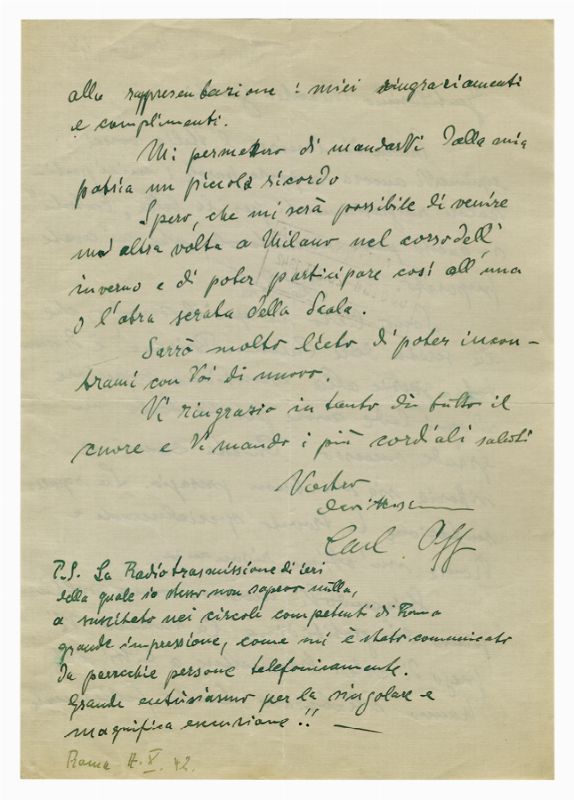 alla rappresentazione i miei ringraziamenti
e complimenti.
Mi permetto di mandarVi dalla mia
patria un piccolo ricordo
Spero, che mi serà possibile di venire
un' altra volta a Milano nel corso dell'
inverno e di poter participare così all' una
o l'atra serata della Scala.
Sarrò molto lieto di poter incon-
trarmi con Voi di nuovo.
Vi ringrazio in tanto di tutto il
cuore e Vi mando i più cordiali saluti
Vostro
Carl Orff
P.S. La Radiotrasmissione di ieri
della quale io stesso non sapevo nulla,
a suscitato nei circoli competenti di Roma
grande impressione, come mi è stato comunicato
da parecchie persone telefonicamente.
Grande entusiasmo per la singolare e
magnifica esecuzione!! —
Roma X. 42.